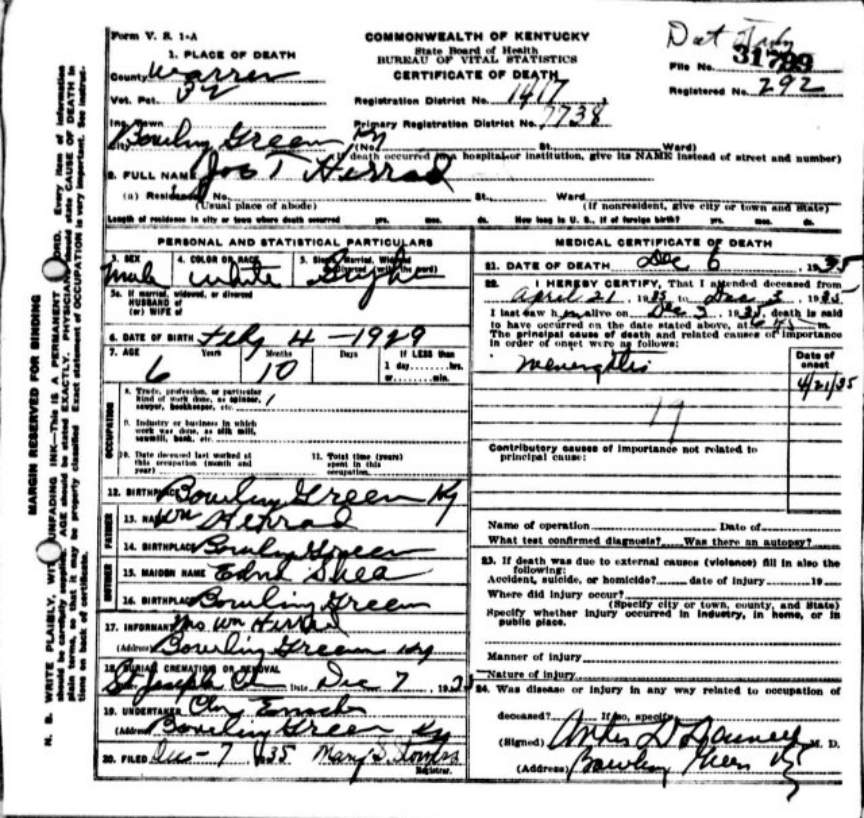 Form V. S. 1-A
COMMONWEALTH OF KENTUCKY
State Board of Health
BUREAU OF VITAL STATISTICS
CERTIFICATE OF DEATH
File No. 31799
Registered No. 292
1. PLACE OF DEATH
County Warren
Vot. Pct.
Registration District No. 1417
Inc. Town
Primary Registration District No. 7738
City Bowling Green Ky (No. St. Ward)
(If death occurred in a hospital or institution, give its NAME instead of street and number)
2. FULL NAME Joe T Herrod
(a) Residence. No. St., Ward
(Usual place of abode) (If nonresident, give city or town and State)
Length of residence in city or town where death occurred yrs. mos. ds. How long in U. S., if of foreign birth? yrs. mos. ds.
PERSONAL AND STATISTICAL PARTICULARS
3. SEX 4. COLOR OR RACE 5. Single, Married, Widowed
Divorced (write the word)
male white Single
5a. If married, widowed, or divorced
HUSBAND of
(or) WIFE of
6. DATE OF BIRTH Feby 4 - 1929
7. AGE Years Months Days If LESS than
1 day hrs.
or min.
6 10
OCCUPATION
8. Trade, profession, or particular
kind of work done, as spinner,
sawyer, bookkeeper, etc.
9. Industry or business in which
work was done, as silk mill,
sawmill, bank, etc.
10. Date deceased last worked at
this occupation (month and
year)
11. Total time (years)
spent in this
occupation
12. BIRTHPLACE Bowling Green Ky
FATHER
13. NAME Wm Herrod
14. BIRTHPLACE Bowling Green
MOTHER
15. MAIDEN NAME Edna Shea
16. BIRTHPLACE Bowling Green
17. INFORMANT Mrs Wm Herrod
(Address) Bowling Green Ky
18. BURIAL CREMATION OR REMOVAL
St Joseph Date Dec 7, 1935
19. UNDERTAKER
(Address) Bowling Green Ky
20. FILED Dec - 7 1935 Mary S.
Registrar.
MEDICAL CERTIFICATE OF DEATH
21. DATE OF DEATH Dec 6, 1935
22. I HEREBY CERTIFY, That I attended deceased from
April 21, 1935 to Dec 3, 1935
I last saw him alive on Dec 3, 1935, death is said
to have occurred on the date stated above, at m.
The principal cause of death and related causes of importance
in order of onset were as follows:
Date of
onset
meningitis 4/21/35
Contributory causes of importance not related to
principal cause:
Name of operation Date of
What test confirmed diagnosis? Was there an autopsy?
23. If death was due to external causes (violence) fill in also the
following:
Accident, suicide, or homicide? date of injury 19
Where did injury occur?
(Specify city or town, county, and State)
Specify whether injury occurred in industry, in home, or in
public place.
Manner of injury
Nature of injury
24. Was disease or injury in any way related to occupation of
deceased? If so, specify
(Signed) M. D.
(Address) Bowling Green Ky
MARGIN RESERVED FOR BINDING
N. B. WRITE PLAINLY, WITH UNFADING INK—THIS IS A PERMANENT RECORD. Every item of information
should be carefully supplied. AGE should be stated EXACTLY. PHYSICIANS should state CAUSE OF DEATH in
plain terms, so that it may be properly classified. Exact statement of OCCUPATION is very important. See instruc-
tions on back of certificate.